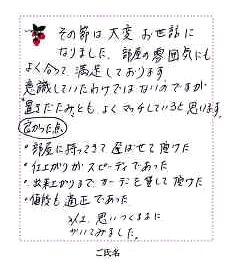 その節は大変お世話に
なりました。部屋の雰囲気にも
よく合って満足しております
意識していたわけではないのですが
置きだたみとも、よくマッチしていると思います。
良かった点
・部屋に持ってきて選ばせて頂けた
・仕上がりがスピーディであった
・出来上がりまでカーテンを貸して頂けた
・値段も適正であった
以上、思いつくままに
かいてみました。
ご氏名